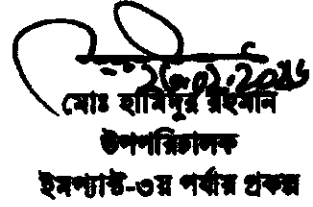 মোঃ হামিদুর রহমান
উপপরিচালক
ইমপ্যাক্ট-৩য় পর্যায় প্রকল্প